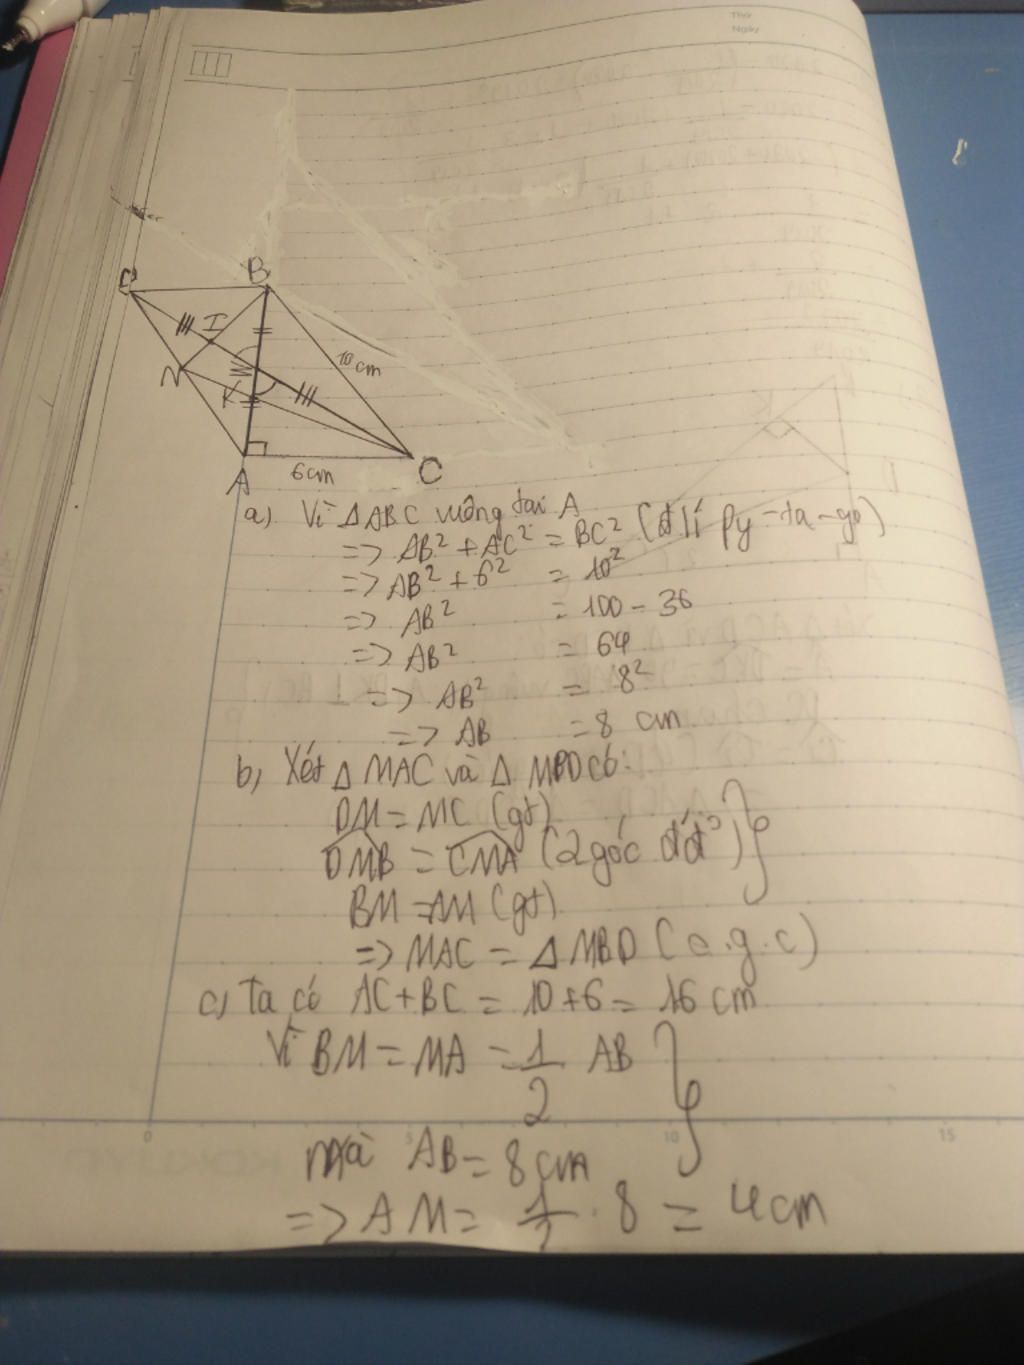 Thứ
Ngày
D
B
I
10 cm
N
M
K
A
6cm
C
a) Vì ΔABC vuông tại A
=> AB² + AC² = BC² (đ lí Py-ta-go)
=> AB² + 6² = 10²
=> AB² = 100 - 36
=> AB² = 64
=> AB² = 8²
=> AB = 8 cm
b, Xét Δ MAC và Δ MBD có:
DM = MC (gt)
DMB = CMA (2 góc đđ)
BM = AM (gt)
=> MAC = Δ MBD (c.g.c)
c, Ta có AC + BC = 10 + 6 = 16 cm
Vì BM = MA = 1/2 AB
mà AB = 8 cm
=> AM = 1/2 . 8 = 4 cm
0 5 10 15